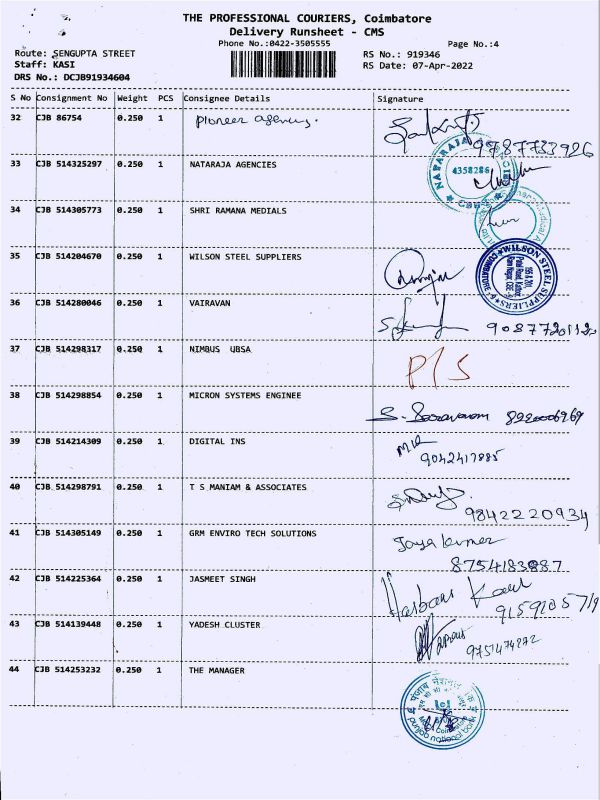 THE PROFESSIONAL COURIERS, Coimbatore
Delivery Runsheet - CMS
Phone No.:0422-3505555
Page No.:4
Route: SENGUPTA STREET
RS No.: 919346
Staff: KASI
RS Date: 07-Apr-2022
DRS No.: DCJB91934604
S No Consignment No Weight PCS Consignee Details Signature
32 CJB 86754 0.250 1 pioneer agency.
9787733926
33 CJB 514325297 0.250 1 NATARAJA AGENCIES
NATARAJA
4358286
34 CJB 514305773 0.250 1 SHRI RAMANA MEDIALS
35 CJB 514204670 0.250 1 WILSON STEEL SUPPLIERS
WILSON STEEL SUPPLIERS
36 CJB 514280046 0.250 1 VAIRAVAN
9087720112
37 CJB 514298317 0.250 1 NIMBUS UBSA P/S
38 CJB 514298854 0.250 1 MICRON SYSTEMS ENGINEE
S. Saravanan 8220006969
39 CJB 514214309 0.250 1 DIGITAL INS
9042417885
40 CJB 514298791 0.250 1 T S MANIAM & ASSOCIATES
9842220934
41 CJB 514305149 0.250 1 GRM ENVIRO TECH SOLUTIONS Jaya kumar
8754183887
42 CJB 514225364 0.250 1 JASMEET SINGH
Harbans Kaur
9159105719
43 CJB 514139448 0.250 1 YADESH CLUSTER
9751474272
44 CJB 514253232 0.250 1 THE MANAGER
पंजाब नैशनल बैंक
punjab national bank